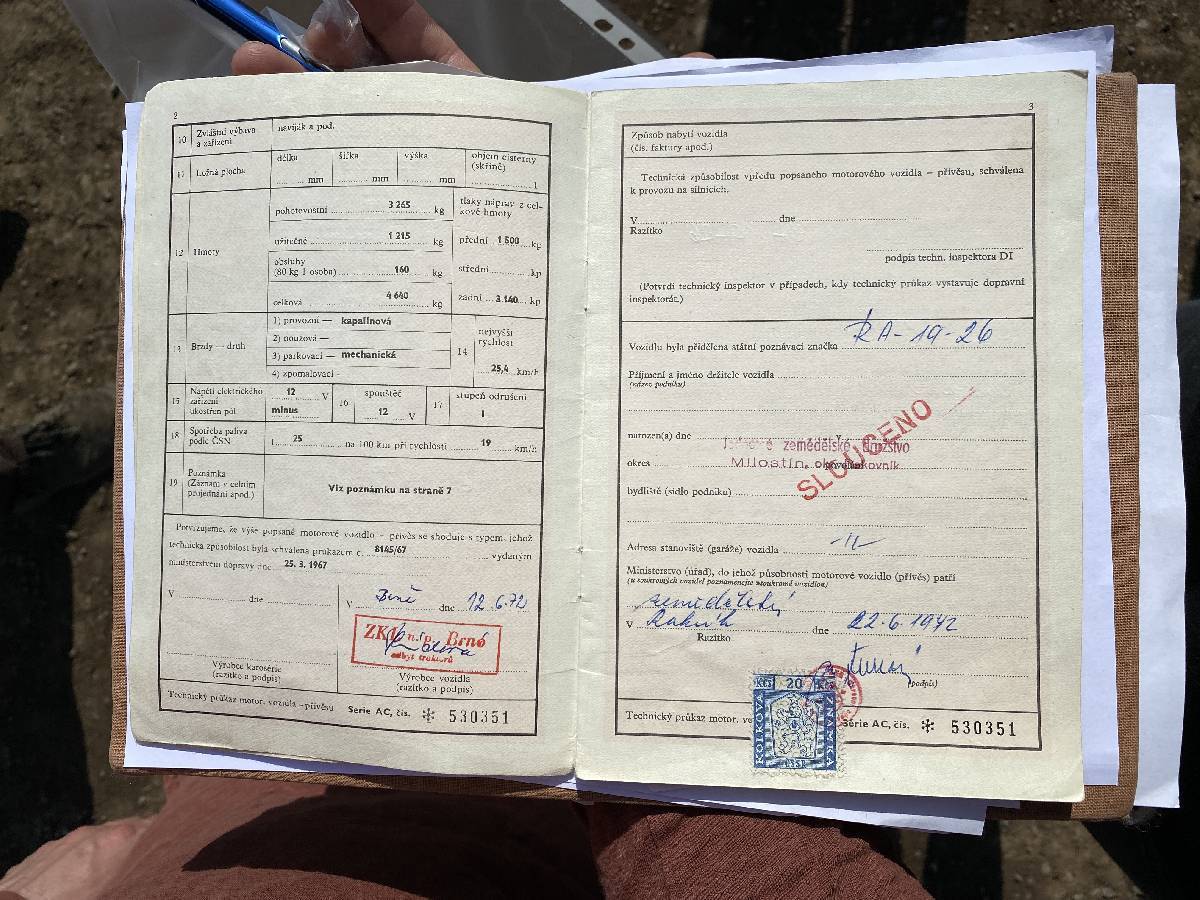 2
10 Zvláštní výbava a zařízení
naviják a pod.
11 Ložná plocha
délka šířka výška objem cisterny (skříně)
mm mm mm l
12 Hmoty
pohotovostní 3 265 kg
užitečné 1 215 kg
obsluhy
(80 kg 1 osoba) 160 kg
celková 4 640 kg
tlaky náprav z cel-
kové hmoty
přední 1 500 kp
střední kp
zadní 3.140 kp
13 Brzdy — druh
1) provozní — kapalinová
2) nouzová —
3) parkovací — mechanická
4) zpomalovací -
14 nejvyšší rychlost
25,4 km/h
15 Napětí elektrického
zařízení
ukostřen pól
12 V
minus
16 spouštěč
12 V
17 stupeň odrušení
1
18 Spotřeba paliva
podle ČSN
l 25 na 100 km při rychlosti 19 km/h
19 Poznámka
(Záznam v celním
projednání apod.)
Viz poznámku na straně 7
Potvrzujeme, že výše popsané motorové vozidlo – přívěs se shoduje s typem, jehož
technická způsobilost byla schválena průkazem č. 8145/67 vydaným
ministerstvem dopravy dne 25. 3. 1967
V dne
V Brně dne 12.6.72
ZKL n.p. Brno
odbyt traktorů
Výrobce karosérie
(razítko a podpis)
Výrobce vozidla
(razítko a podpis)
Technický průkaz motor. vozidla –přívěsu Série AC, čís. ✻ 530351
3
Způsob nabytí vozidla
(čís. faktury apod.)
Technická způsobilost vpředu popsaného motorového vozidla – přívěsu, schválena
k provozu na silnicích.
V dne
Razítko
podpis techn. inspektora DI
(Potvrdí technický inspektor v případech, kdy technický průkaz vystavuje dopravní
inspektorát.)
Vozidlu byla přidělena státní poznávací značka RA-19-26
Příjmení a jméno držitele vozidla
(název podniku)
narozen(a) dne
Jednotné zemědělské družstvo
okres Milostín, okr. Rakovník
SLOUČENO
bydliště (sídlo podniku)
Adresa stanoviště (garáže) vozidla -11-
Ministerstvo (úřad), do jehož působnosti motorové vozidlo (přívěs) patří
(u soukromých vozidel poznamenejte soukromé vozidlo)
zemědělský
V Rakovník dne 22.6.1972
Razítko
(podpis)
Kčs 20 Kčs
KOLKOVÁ
ZNÁMKA
Technický průkaz motor. Série AC, čís. ✻ 530351